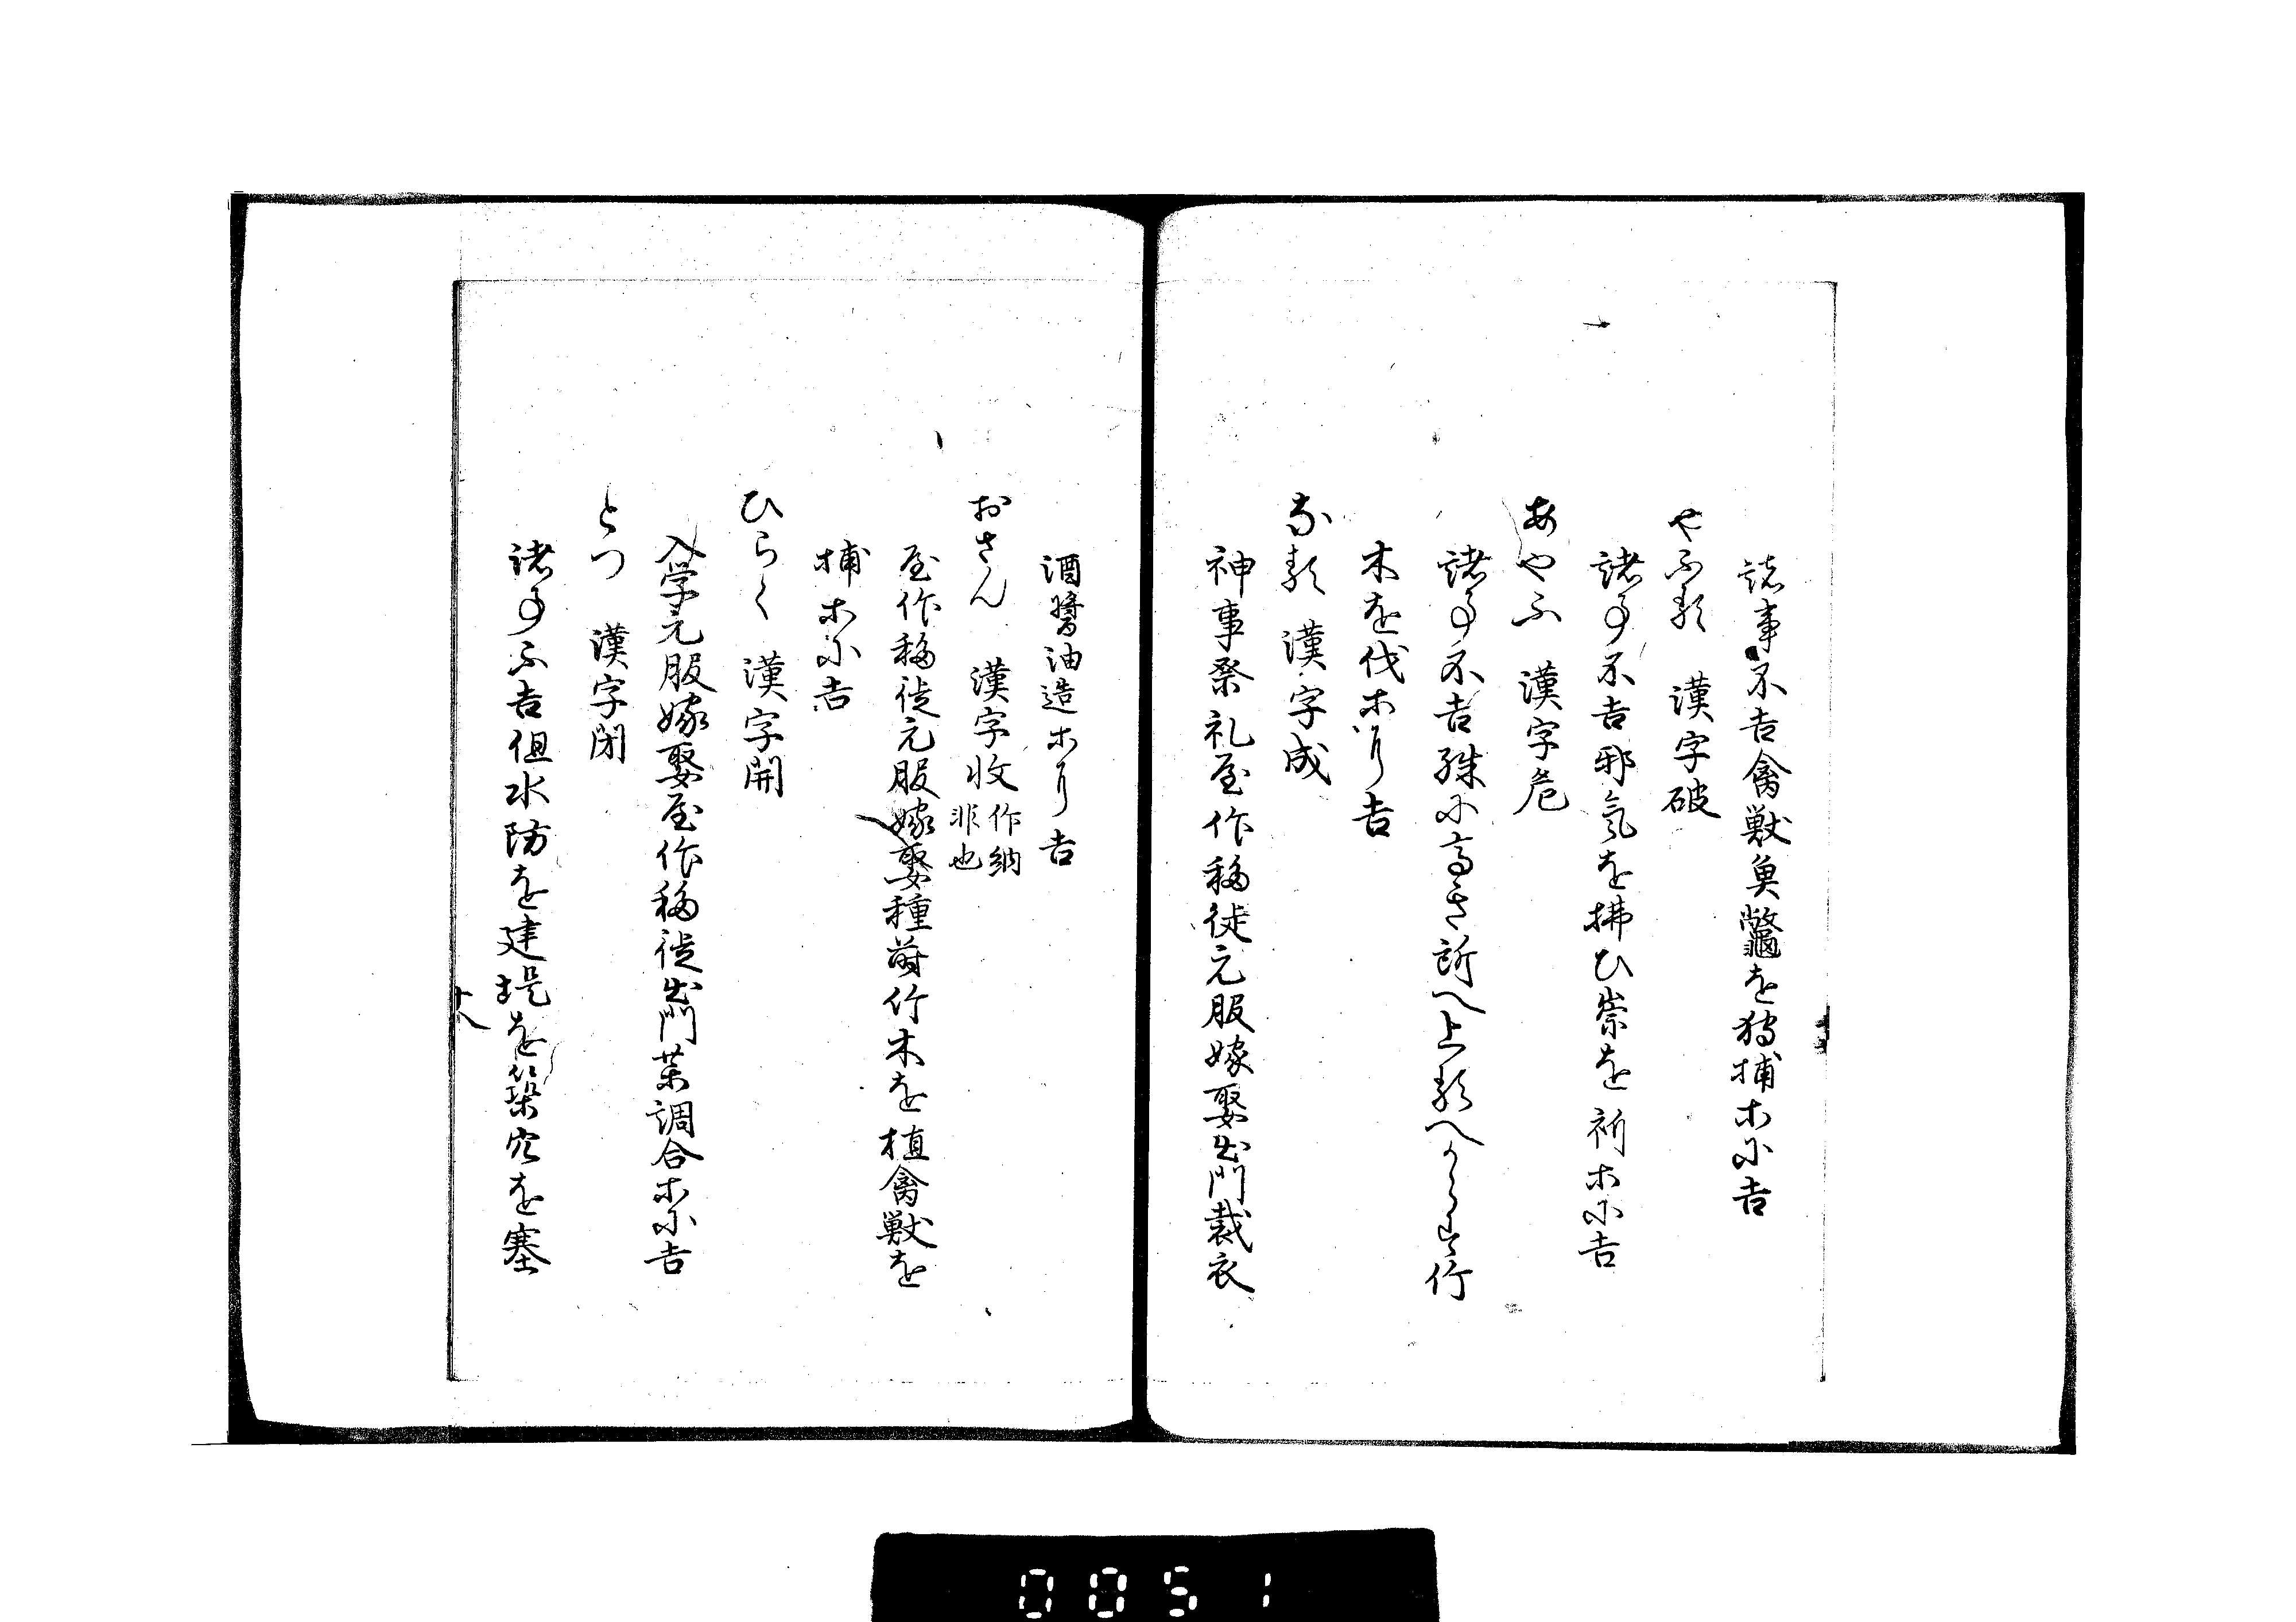 諸事不吉禽獣魚鼈を狩捕ホに吉
やふる　漢字破
諸事不吉邪気を拂ひ祟を祈ホに吉
あやふ　漢字危
諸事不吉殊に高き所へ上るへからす竹
木を伐ホハ吉
なる　漢字成
神事祭礼屋作移徙元服嫁娶出門裁衣
酒醬油造ホハ吉
おさん　漢字收　作納
非也
屋作移徙元服嫁娶種蒔竹木を植禽獣を
捕ホに吉
ひらく　漢字開
入学元服嫁娶屋作移徙出門薬調合ホに吉
とつ　漢字閉
諸事不吉但水防を建堤を築穴を塞
十八
0051